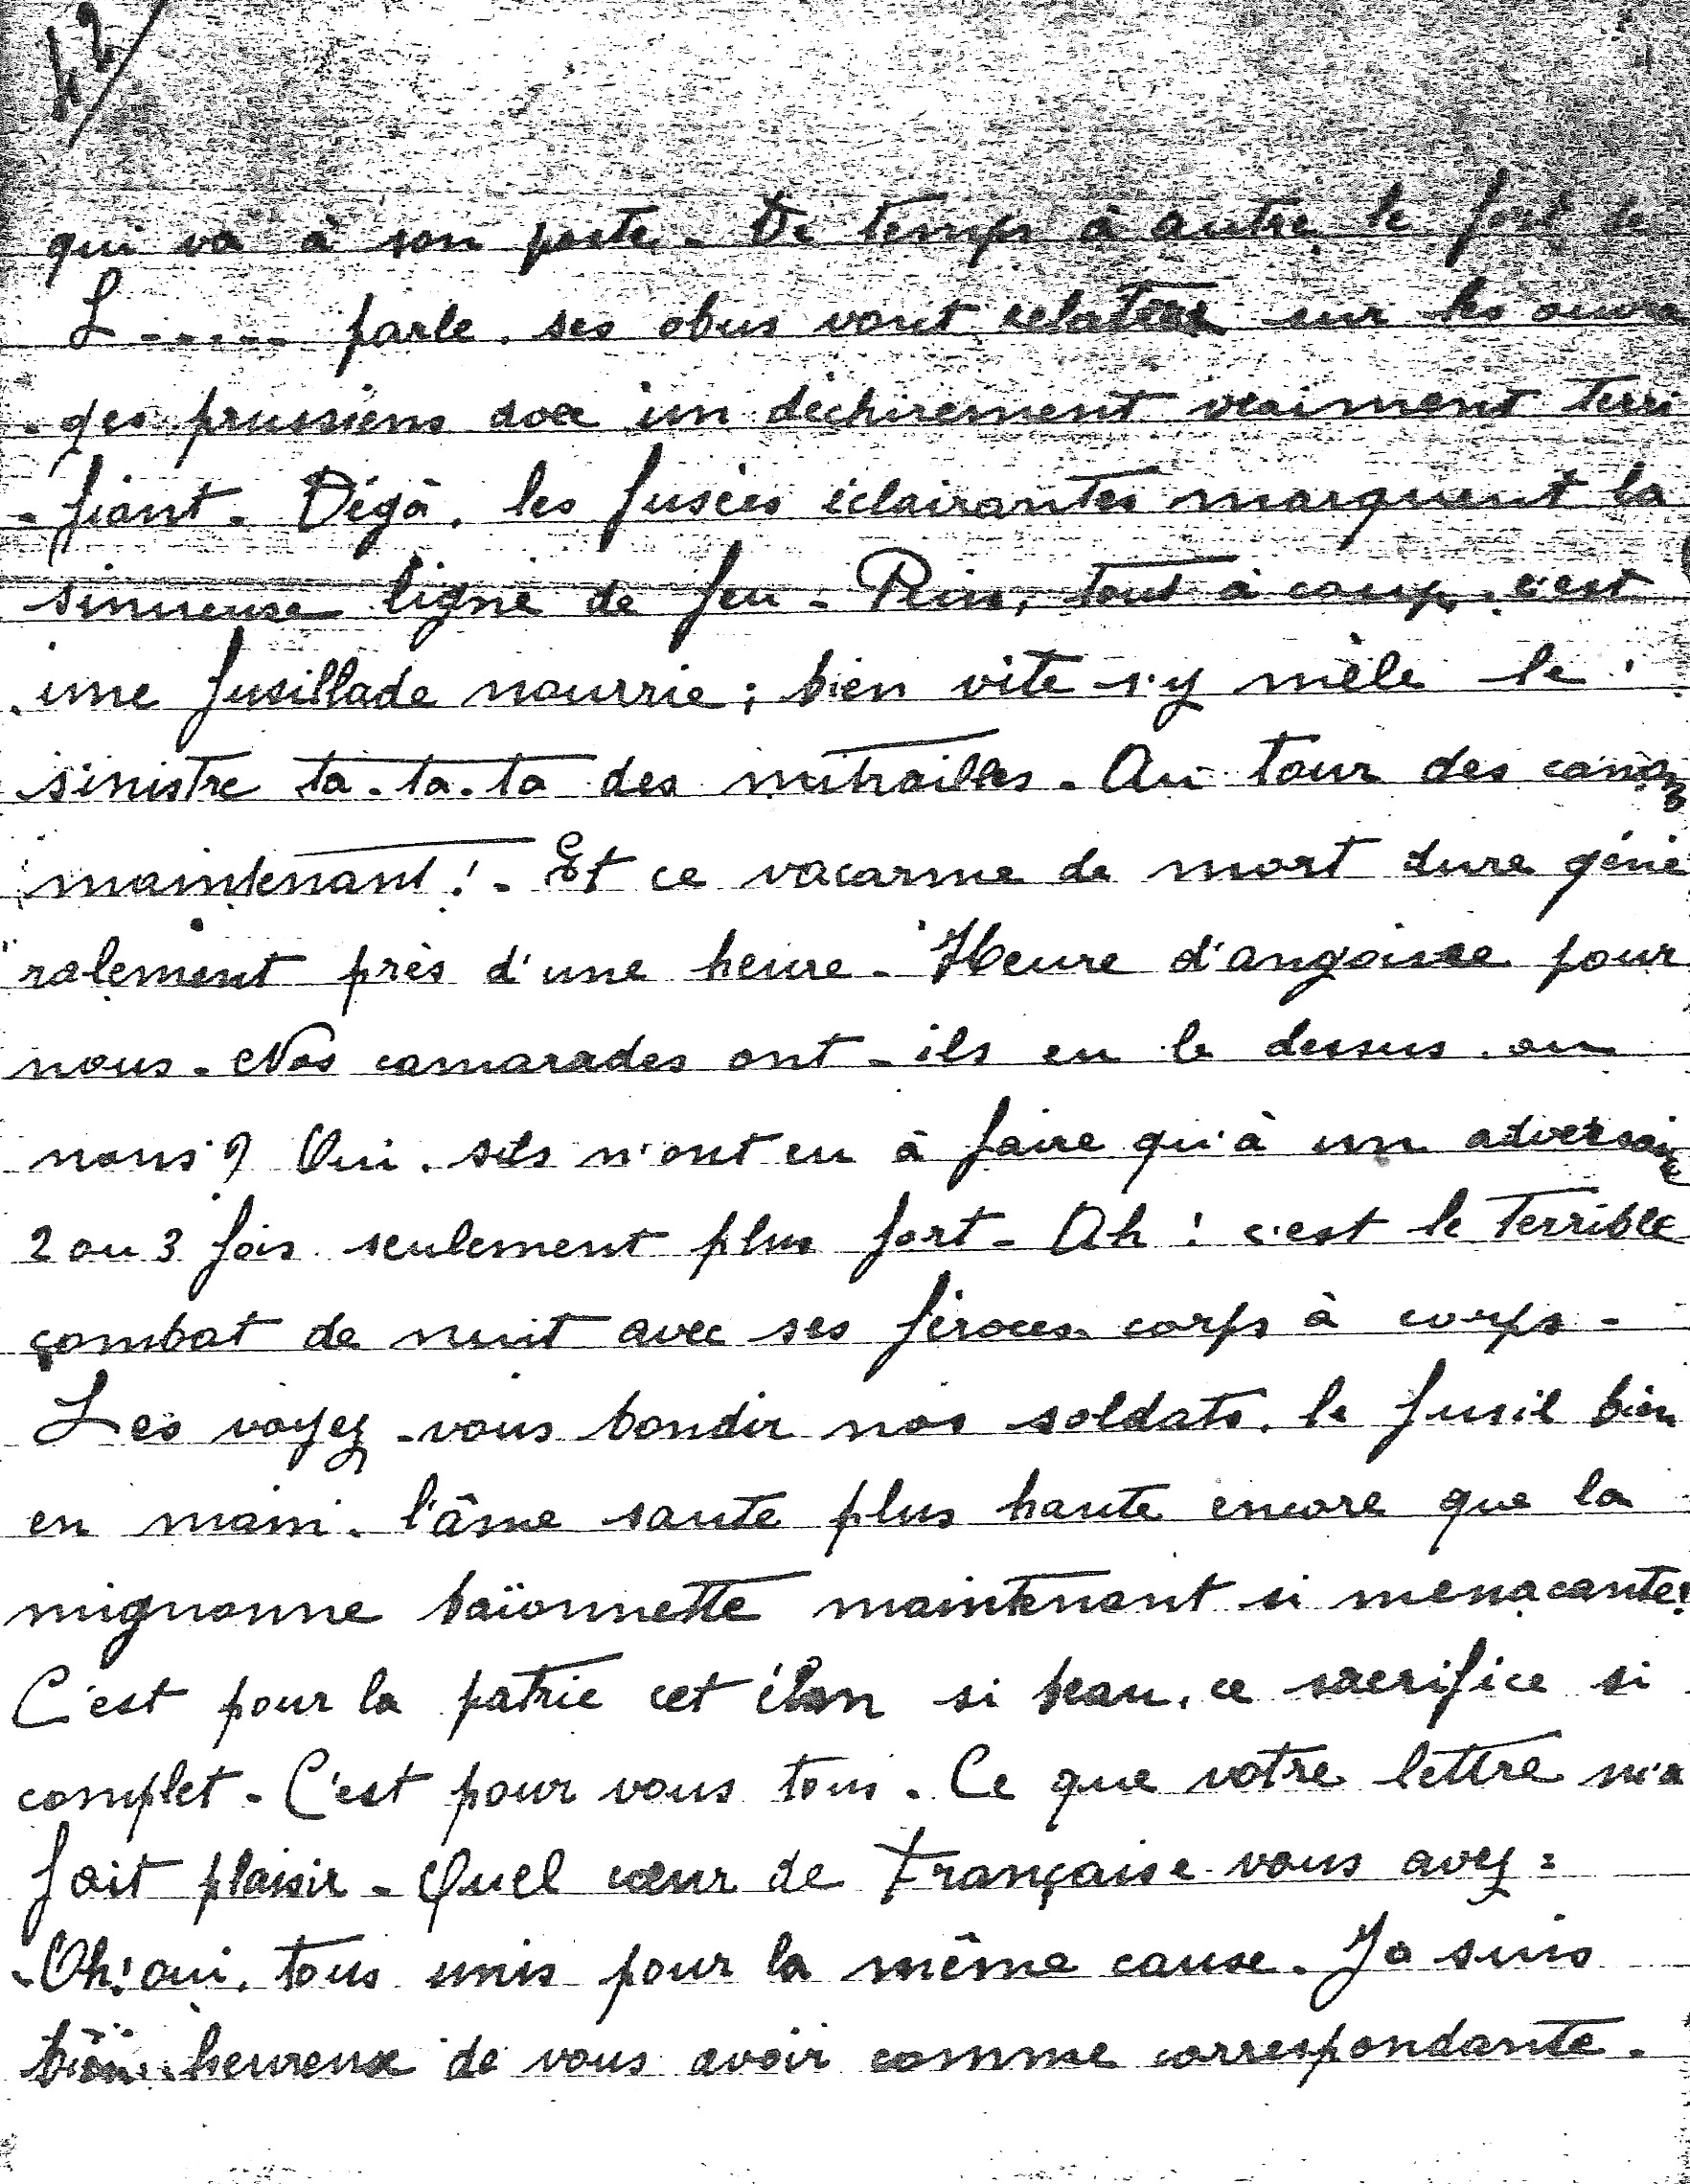 42/
qui va à son poste. De temps à autre le fort de
L..... parle, ses obus vont éclater sur les ouvra
-ges prussiens avec un déchirement vraiment terri
-fiant. Déjà, les fusées éclairantes marquent la
sinueuse ligne de feu. Puis, tout à coup, c'est
une fusillade nourrie; bien vite s'y mêle le
sinistre ta-ta-ta des mitrailles. Au tour des canons
maintenant! Et ce vacarme de mort dure géné
ralement près d'une heure. Heure d'angoisse pour
nous. Nos camarades ont-ils eu le dessus, ou
nous? Oui, s'ils n'ont eu à faire qu'à un adversaire
2 ou 3 fois seulement plus fort. Ah! c'est le terrible
combat de nuit avec ses féroces corps à corps.
Les voyez-vous bondir nos soldats, le fusil bien
en main, l'âme saute plus haute encore que la
mignonne baïonnette maintenant si menacante!
C'est pour la patrie cet élan si beau, ce sacrifice si
complet. C'est pour vous tous. Ce que votre lettre m'a
fait plaisir. Quel cœur de Française vous avez:
-Oh! oui, tous unis pour la même cause. Je suis
bien heureux de vous avoir comme correspondante.